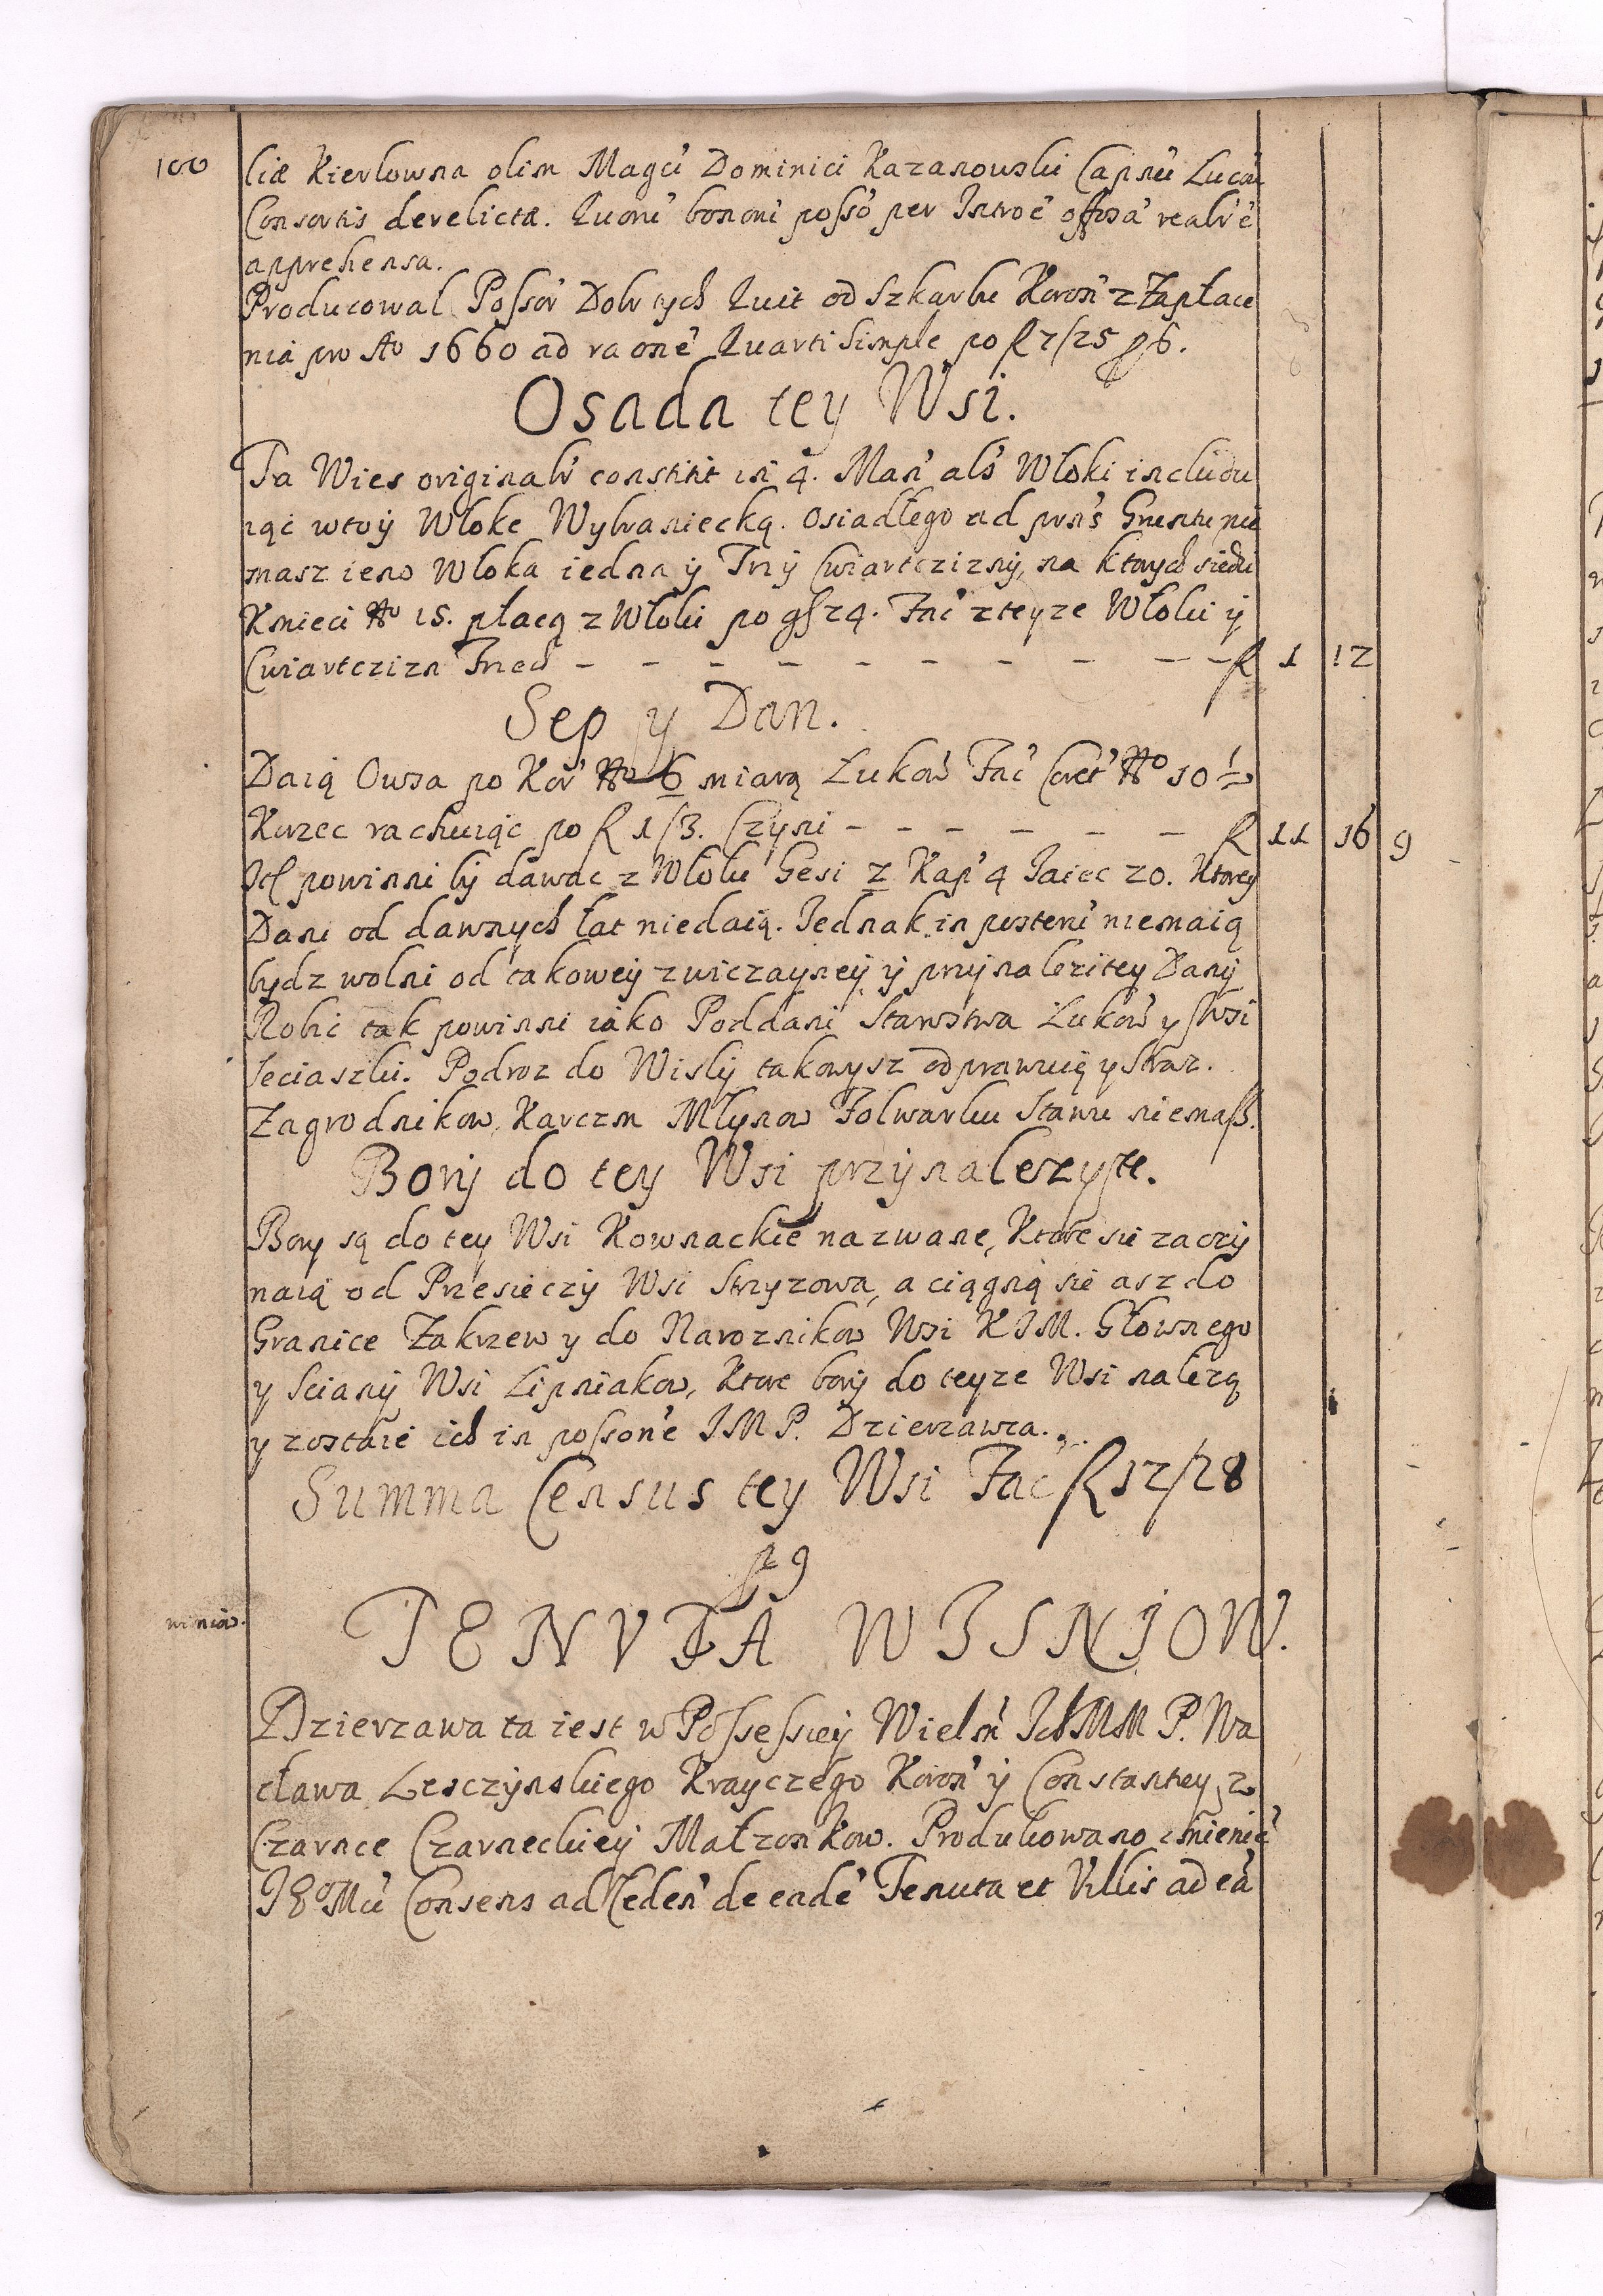 100
liæ Kierlowna olim Magci Dominici Kazanowski Capnei Lucou
Consortis derelictæ. Quoru bonoru posso per Introe offosa realr e
apprehensa.
Producował Possor Dobr tych Quit od Szkarbu Koron z Zapłace
nia pro Ao 1660 ad raone Quarti Simple po f 7/25 ₰ 6.
Osada tey Wsi.
Ta Wies originalr constitit in 4. Man als Włoki includu
iąc w toy Włoke Wybraniecką. Osiadłego ad prns Gruntu nie
masz ieno Włoka iedna y Trzy Cwiartczizny, na ktorych siedzi
Kmieci No 15. płacą z Włoki po gſ 24. Fac z teyze Włoki y
Cwiartczizn Trzech - - - - - - - - - - f 1 12
Sep y Dan.
Daią Owsa po Kor No 6 miarą Łukow Fac Coret No 10½
Korzec rachuiąc po f 1/3. Czyni - - - - - - f 11 16 9
Itd powinni by dawac z Włoki Gesi 2 Kap 4 Jaiec 20. Ktorey
Dani od dawnych łat niedaią. Jednak in posteru niemaią
bydz wolni od takowey zwiczayney y przynalezitey Dany
Robic tak powinni iako Poddani Starostwa Łukow y Wsi
Seciaszki. Podroz do Wisły takowysz odprawuią y Straz.
Zagrodnikow, Karczm Młynow Folwarku Stawu niemasz.
Bory do tey Wsi przynalezyste.
Bory są do tey Wsi Kownackie nazwane, Ktore sie zaczy
naią od Przesieczy Wsi Strzyzowa, a ciągną sie asz do
Granice Zakrzew y do Naroznikow Wsi KJM. Głownego
y Sciany Wsi Lipniakow, Ktore bory do teyze Wsi nalezą
y zostaie ich in possone JMP. Dzierzawca.
Summa Census tey Wsi Fac f 12/28
₰ 9
TENVTA WISNIOW.
Dzierzawa ta iest w Possessiey Wielm IchMM P. Wa
cława Leszczynskiego Krayczego Koron y Constantey z
Czarnce Czarneckiey Małzonkow. Produkowano imienie
JEoMci Consens ad Ceden de eade Tenuta et Villis ad ea